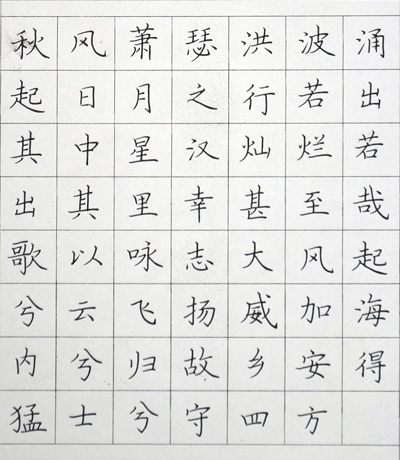 秋风萧瑟洪波涌
起日月之行若出
其中星汉灿烂若
出其里幸甚至哉
歌以咏志大风起
兮云飞扬威加海
内兮归故乡安得
猛士兮守四方